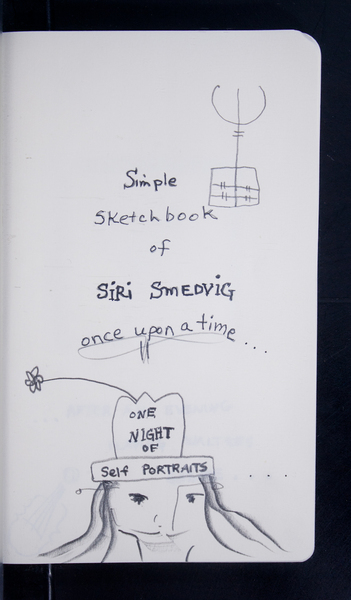 Simple
Sketchbook
of
SiRi SmEDViG
once upon a time...
ONE
NIGHT
OF
Self PORTRAITS
....